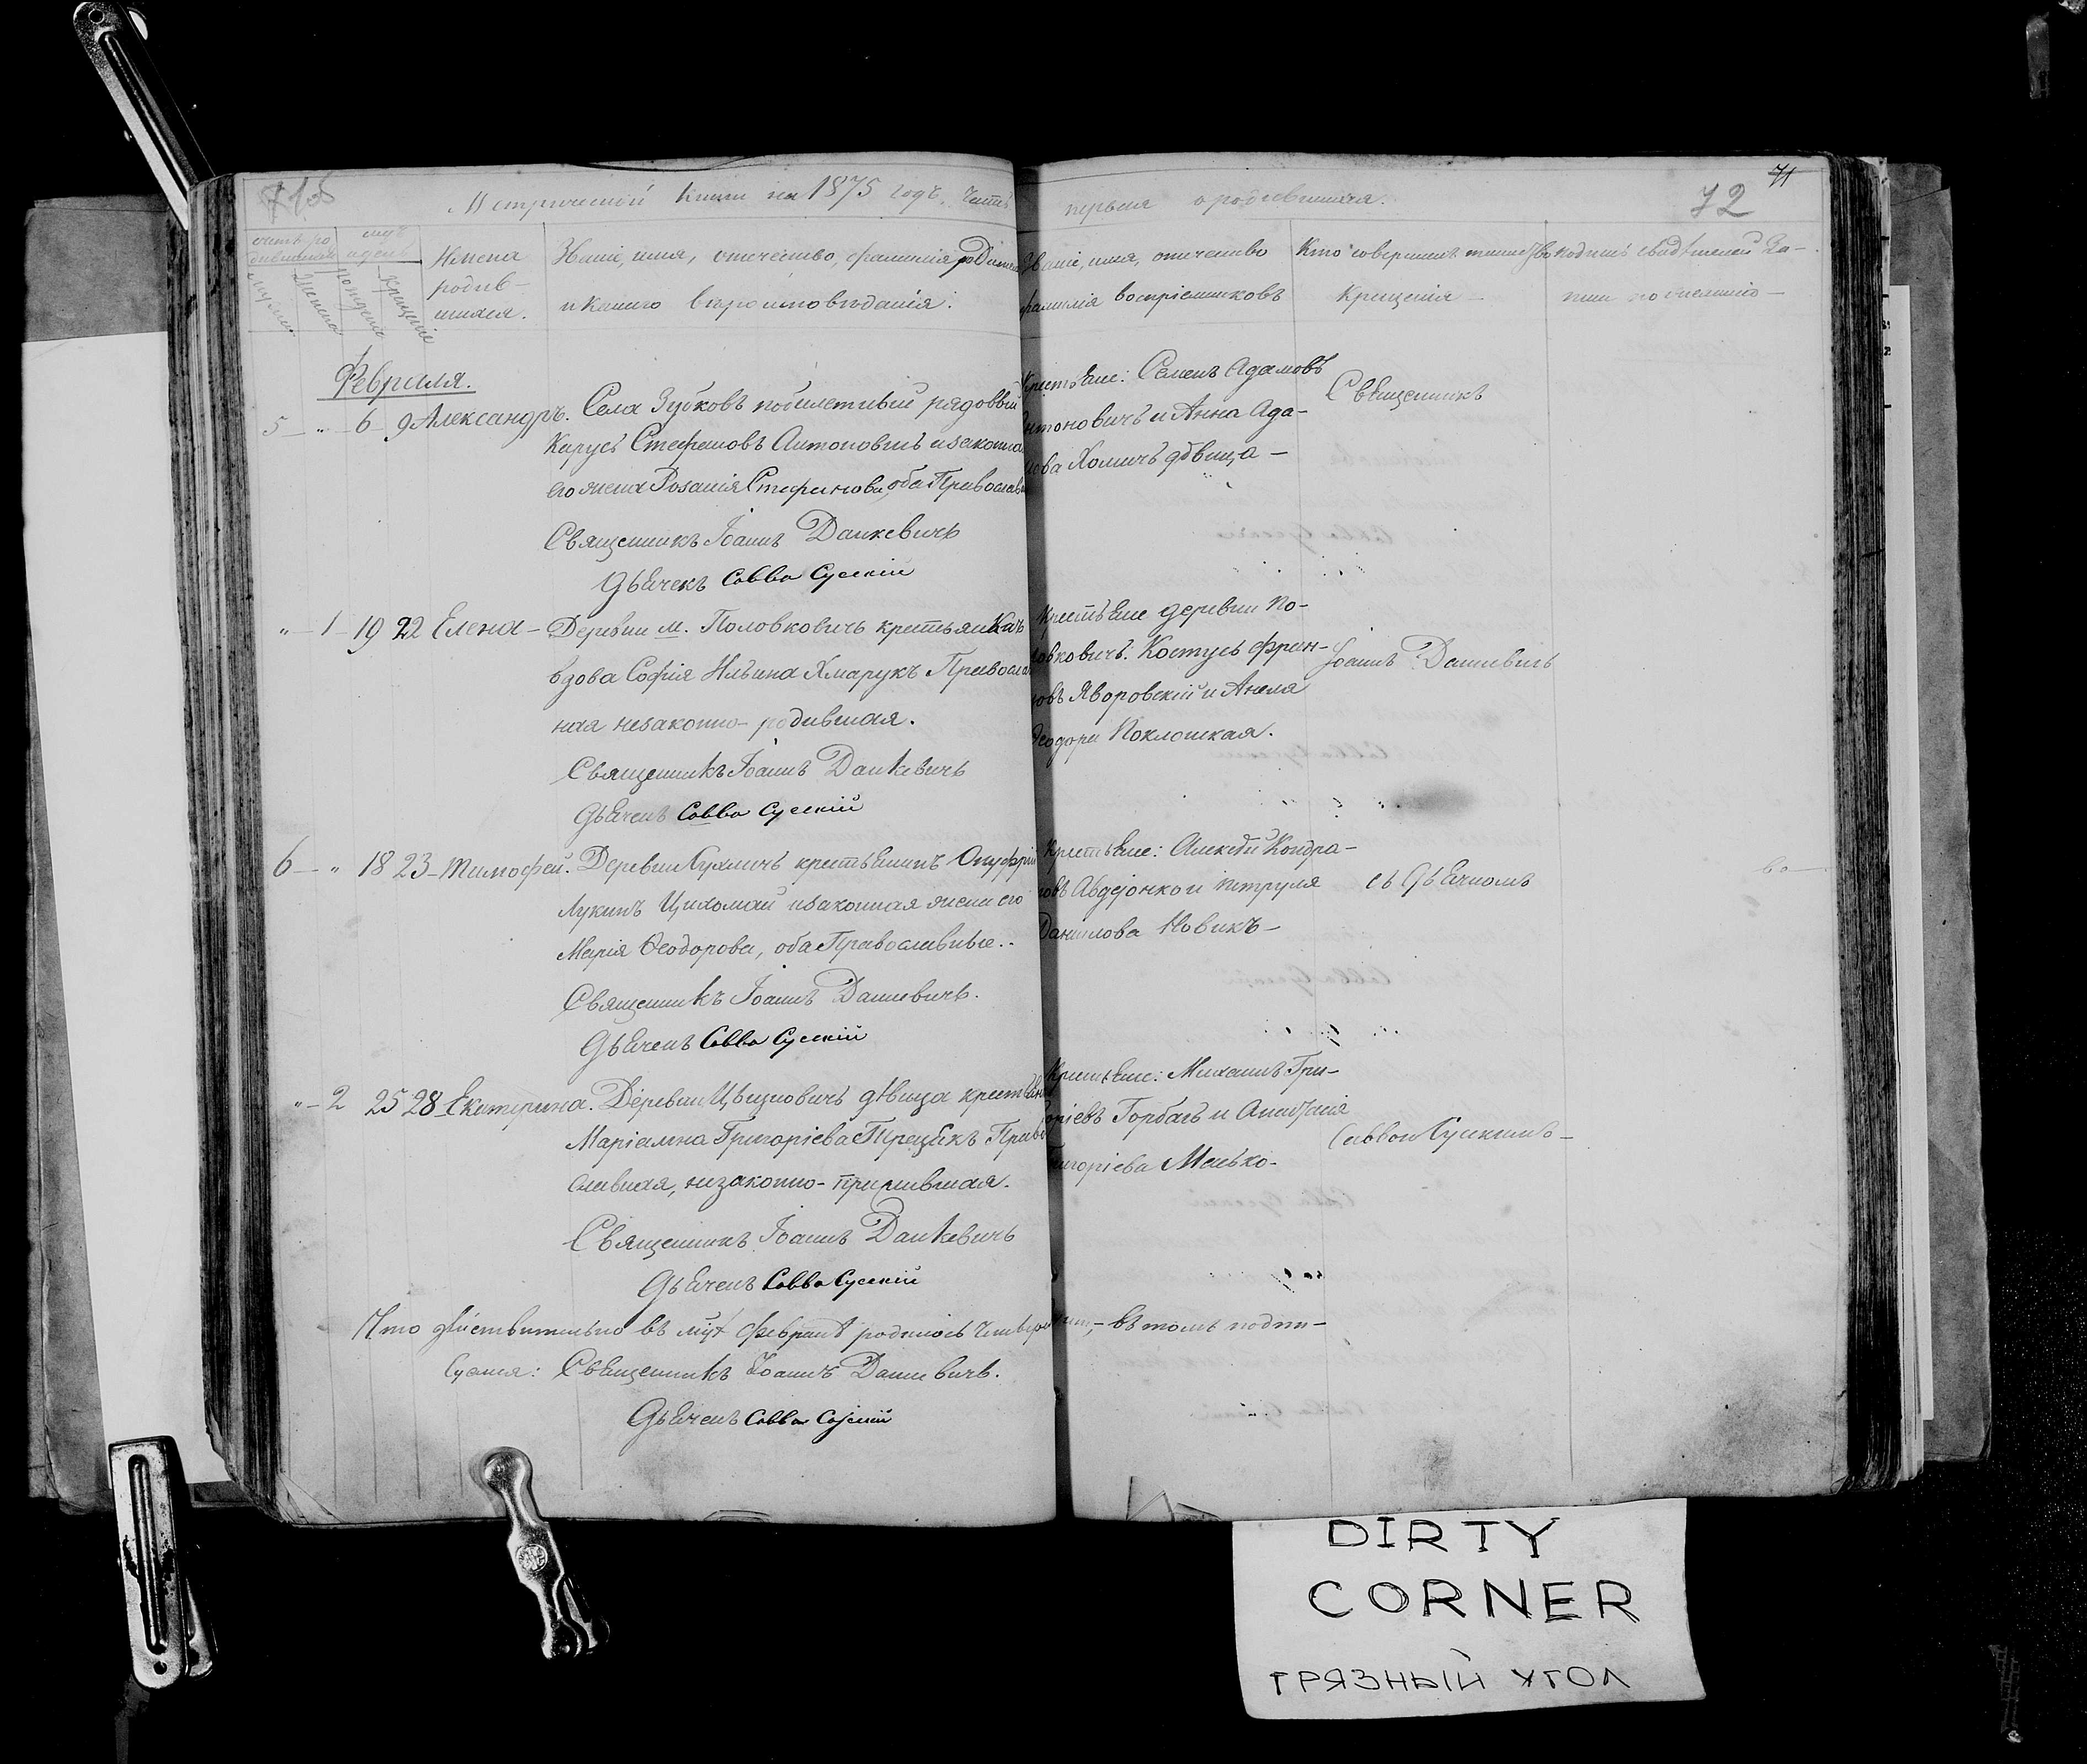 71об
Метрической книги на 1875 годъ. Часть первая о родившихся.
71
72
счетъ родившихся
мужеска
женска
мцъ и день
рожденіе
крещеніе
Имена родившихся.
Званіе, имя, отчество, фамилія родителей
и какого вѣроисповѣданія.
Званіе, имя, отчество
фамилія воспріемниковъ
Кто совершилъ таинство
крещенія
подпись свидѣтелей за-
писи по желанію
Февраля.
5 — " — 6 — 9 Александръ. Села Зубковъ побилетный рядовый
Карусь Стефановъ Антоновичъ и законная
его жена Розалія Стефанова, оба Православ
Священникъ Іоаннъ Данкевичъ
Дьячекъ Савва Сускій
Крестьяне: Семенъ Адамовъ
Антоновичъ и Анна Ада-
мова Хомичъ дѣвица —
Священникъ
" — 1 — 19 22 Елена — Деревни м. Половковичъ крестьянка
вдова Софія Ильина Хмарукъ Православ
ная незаконно-родившая.
Священникъ Іоаннъ Данкевичъ
Дьячекъ Савва Сускій
Крестьяне деревни По-
ловковичъ: Костусь Фран-
ковъ Яворовскій и Анеля
Феодора Поклонская.
Іоаннъ Данкевичъ
6 — " 18 23 — Тимофей. Деревни Лухличъ крестьянинъ Онуфрій
Лукинъ Цихомай и законная жена его
Марія Феодорова, оба Православные.
Священникъ Іоаннъ Данкевичъ.
Дьячекъ Савва Сускій
Крестьяне: Алексѣй Кондра-
товъ Авдејонко и Петруля
Данилова Новикъ —
съ Дьячкомъ
" — 2 25 28 Екатерина. Деревни дѣвица крестьян
Маріамна Григоріева Право
славная, незаконно-прижившая.
Священникъ Іоаннъ Данкевичъ
Дьячекъ Савва Сускій
Крестьяне: Михаилъ Гри-
горіевъ Горбачъ и Анастасія
Григоріева Менько —
Саввою Сускимъ —
Что дѣйствительно въ мцѣ Февралѣ родилось четверо — въ томъ подпи-
суемся: Священникъ Іоаннъ Данкевичъ.
Дьячекъ Савва Сускій
DIRTY
CORNER
ГРЯЗНЫЙ УГОЛ